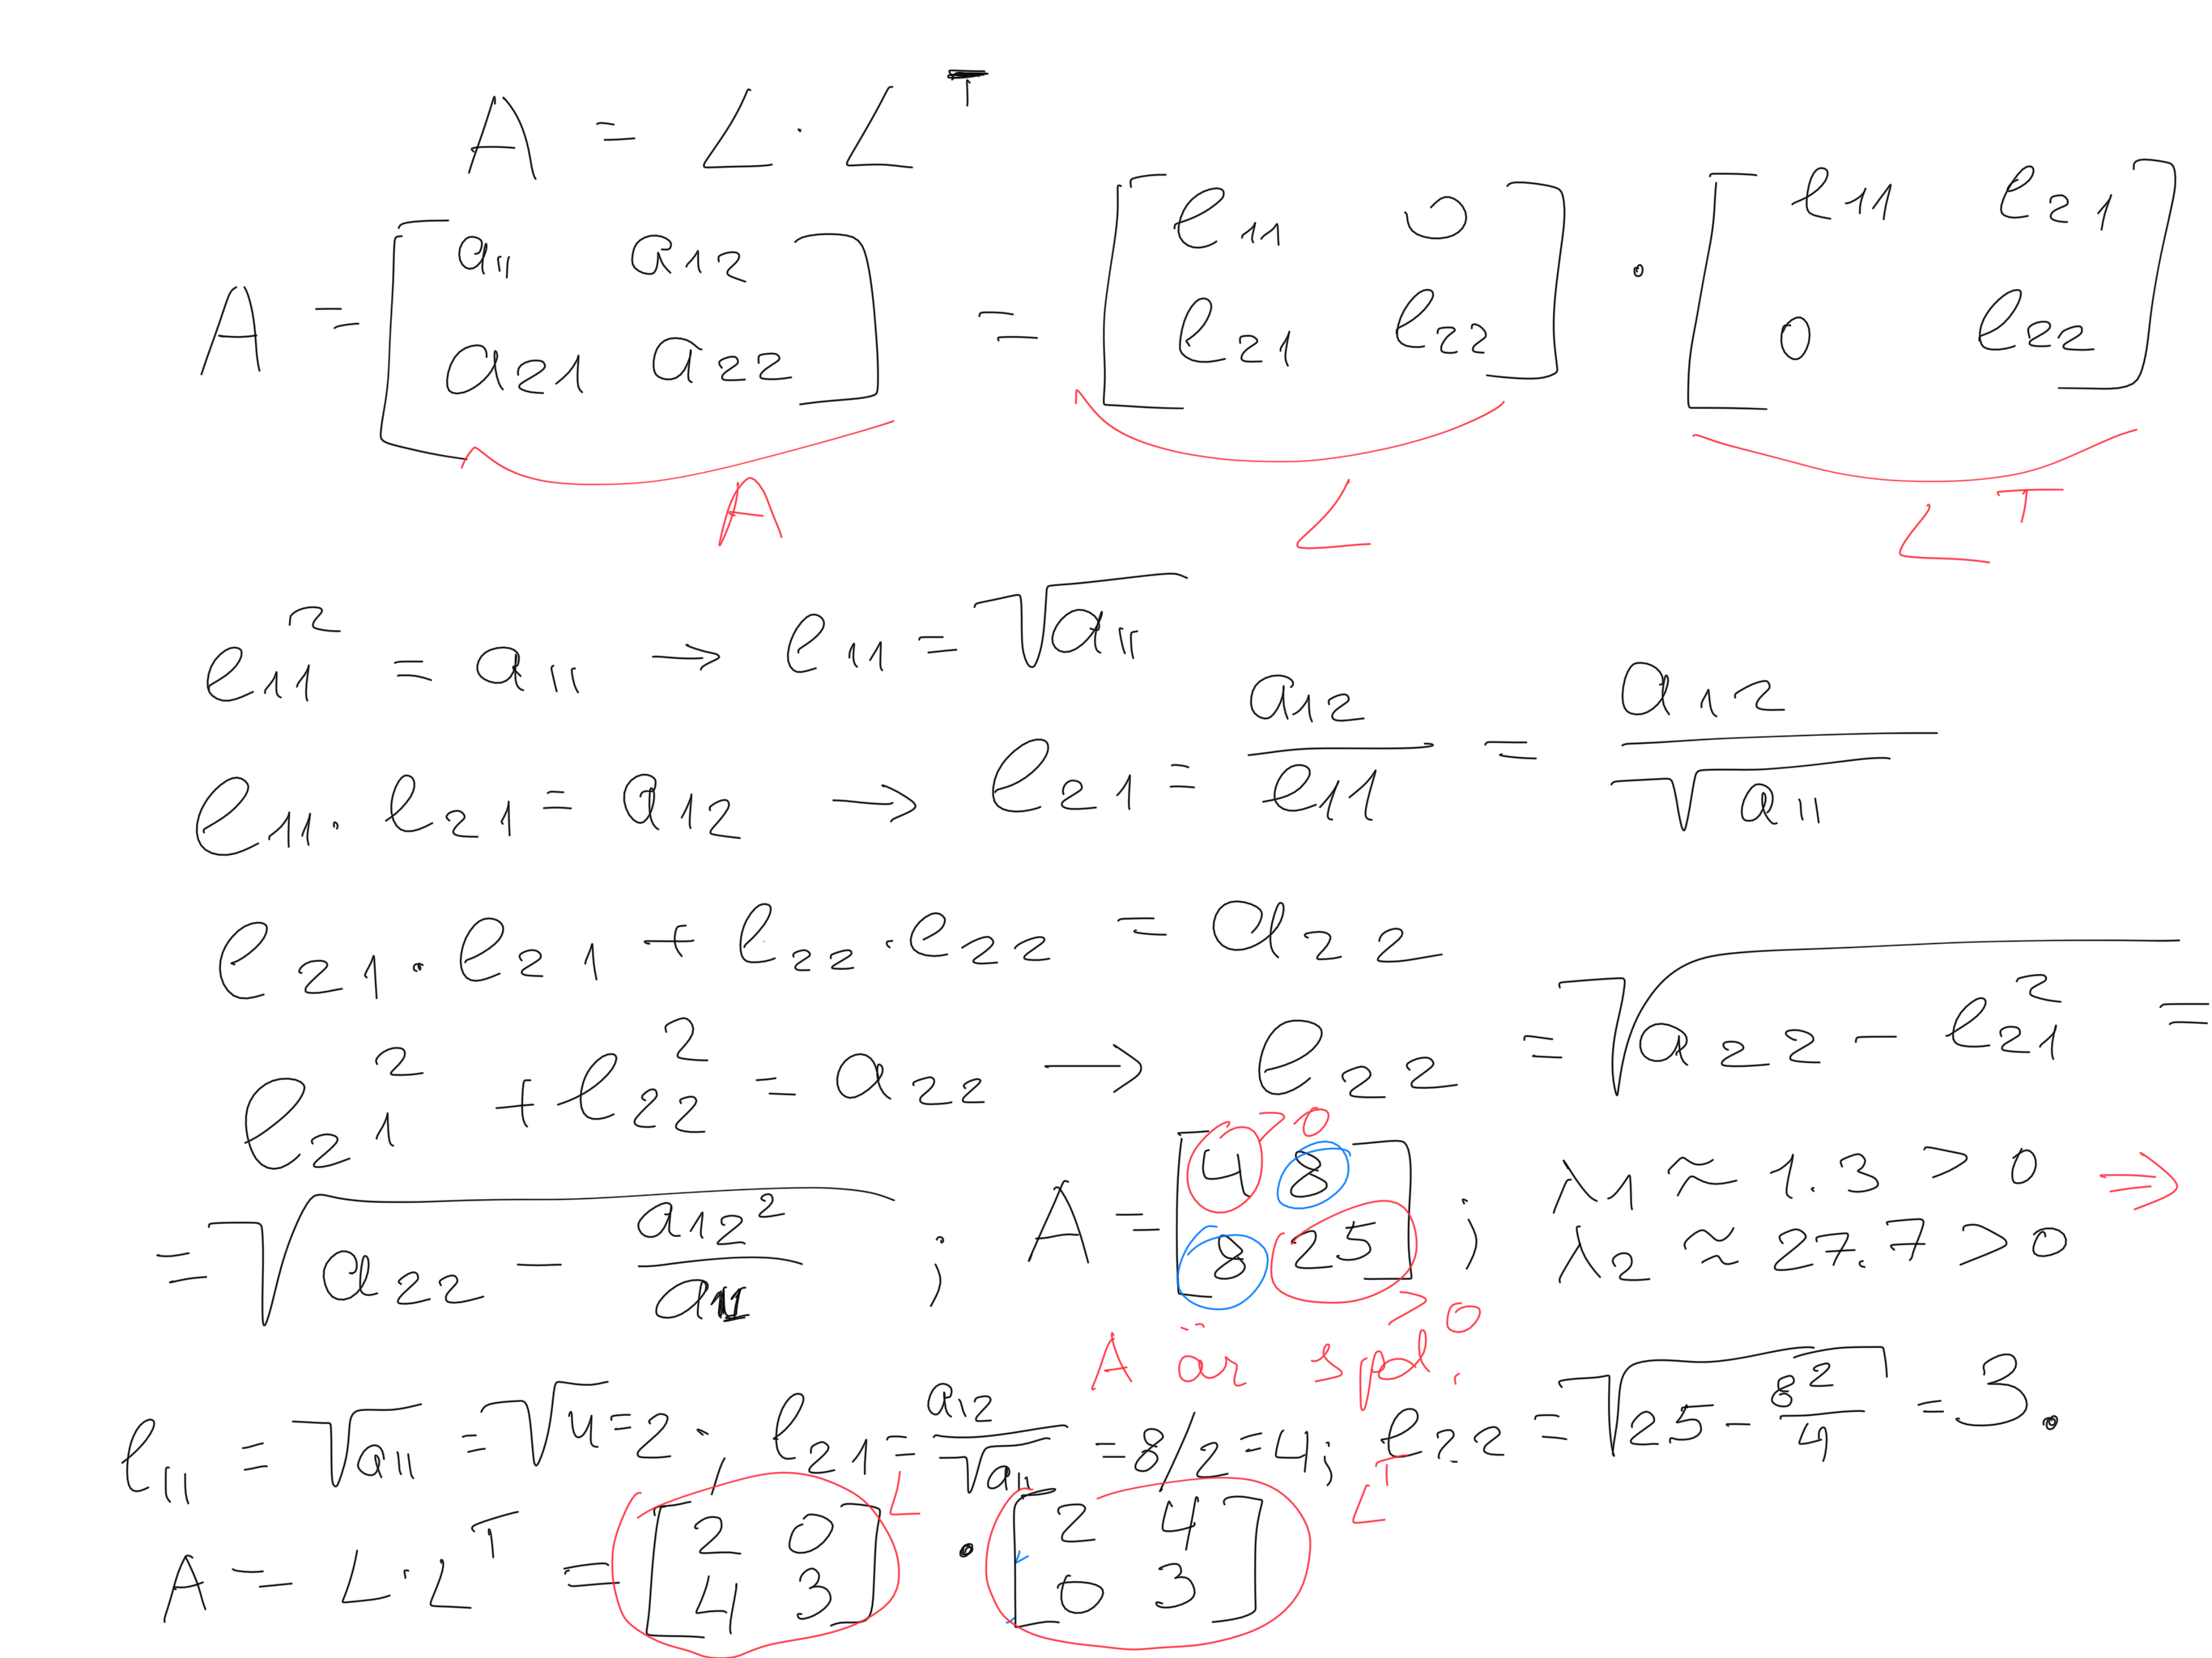 A = L · L^T
A = [a11 a12; a21 a22] = [l11 0; l21 l22] · [l11 l21; 0 l22]
A L L^T
l11^2 = a11 → l11 = √a11
l11 · l21 = a12 → l21 = a12/l11 = a12/√a11
l21 · l21 + l22 · l22 = a22
l21^2 + l22^2 = a22 → l22 = √(a22 − l21^2) =
= √(a22 − a12^2/a11) ; A = [4 8; 8 25] ; λ1 ≈ 1.3 > 0 ⇒
λ2 ≈ 27.7 > 0
>0
>0
A är spd.
l11 = √a11 = √4 = 2 ; l21 = a12/√a11 = 8/2 = 4; l22 = √(25 − 8^2/4) = 3.
L L^T
A = L · L^T = [2 0; 4 3] · [2 4; 0 3]